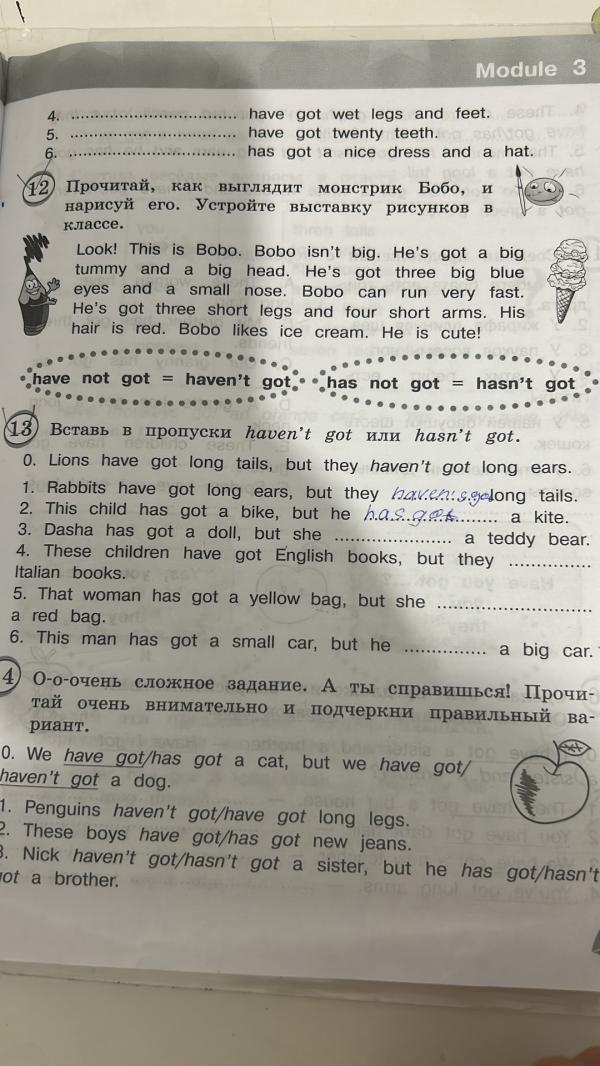 Module 3
4. ................................ have got wet legs and feet.
5. ................................ have got twenty teeth.
6. ................................ has got a nice dress and a hat.
12 Прочитай, как выглядит монстрик Бобо, и
нарисуй его. Устройте выставку рисунков в
классе.
Look! This is Bobo. Bobo isn't big. He's got a big
tummy and a big head. He's got three big blue
eyes and a small nose. Bobo can run very fast.
He's got three short legs and four short arms. His
hair is red. Bobo likes ice cream. He is cute!
have not got = haven't got has not got = hasn't got
13 Вставь в пропуски haven't got или hasn't got.
0. Lions have got long tails, but they haven't got long ears.
1. Rabbits have got long ears, but they long tails.
2. This child has got a bike, but he has got ........ a kite.
3. Dasha has got a doll, but she ...................... a teddy bear.
4. These children have got English books, but they ...............
Italian books.
5. That woman has got a yellow bag, but she ............................
a red bag.
6. This man has got a small car, but he ............... a big car.
4 О-о-очень сложное задание. А ты справишься! Прочи-
тай очень внимательно и подчеркни правильный ва-
риант.
0. We have got/has got a cat, but we have got/
haven't got a dog.
1. Penguins haven't got/have got long legs.
2. These boys have got/has got new jeans.
3. Nick haven't got/hasn't got a sister, but he has got/hasn't
got a brother.